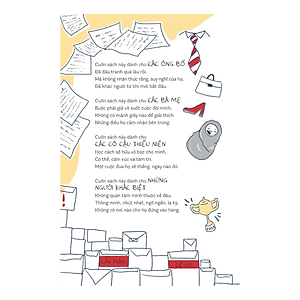 Cuốn sách này dành cho CÁC ÔNG BỐ
Đã đấu tranh quá lâu rồi
Mà không nhận thức rằng, suy nghĩ của họ,
Đã khác người từ khi mới bắt đầu.
Cuốn sách này dành cho CÁC BÀ MẸ
Buộc phải giả vờ suốt cuộc đời mình.
Không có mảnh giấy nào để giải thích
Những điều họ cảm nhận bên trong.
Cuốn sách này dành cho
CÁC CÔ CẬU THIẾU NIÊN
Học cách sở hữu vô học cho mình.
Có thể, cảm xúc và tâm trí
Một cuộc đua họ sẽ thắng, ngày nào đó.
Cuốn sách này dành cho NHỮNG
NGƯỜI KHÁC BIỆT
Không quan tâm mình thuộc về đâu.
Thông minh, nhút nhát, ngớ ngẩn, lạ kỳ,
Không có nơi nào cho họ đứng vào hàng.